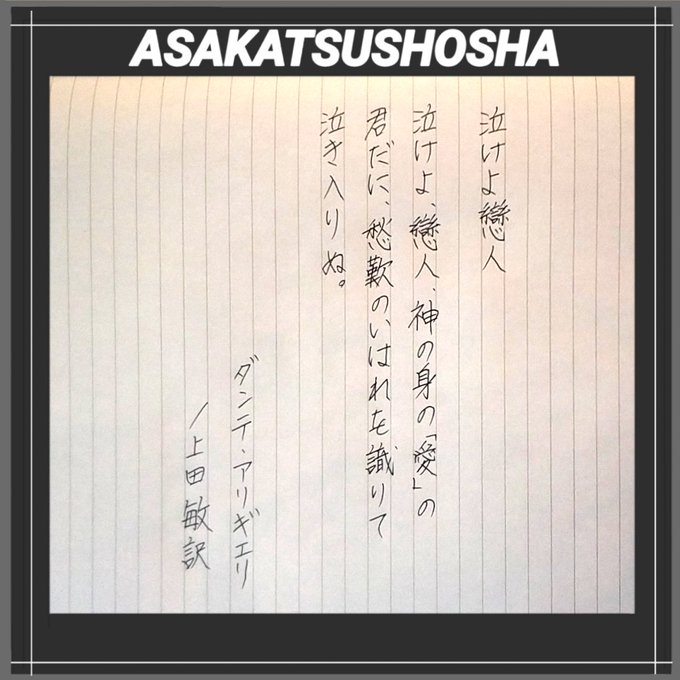 ASAKATSUSHOSHA
泣けよ戀人
泣けよ、戀人、神の身の「愛」の
君だに、愁歎のいはれを識りて
泣き入りぬ。
ダンテ・アリギエリ
/上田敏訳